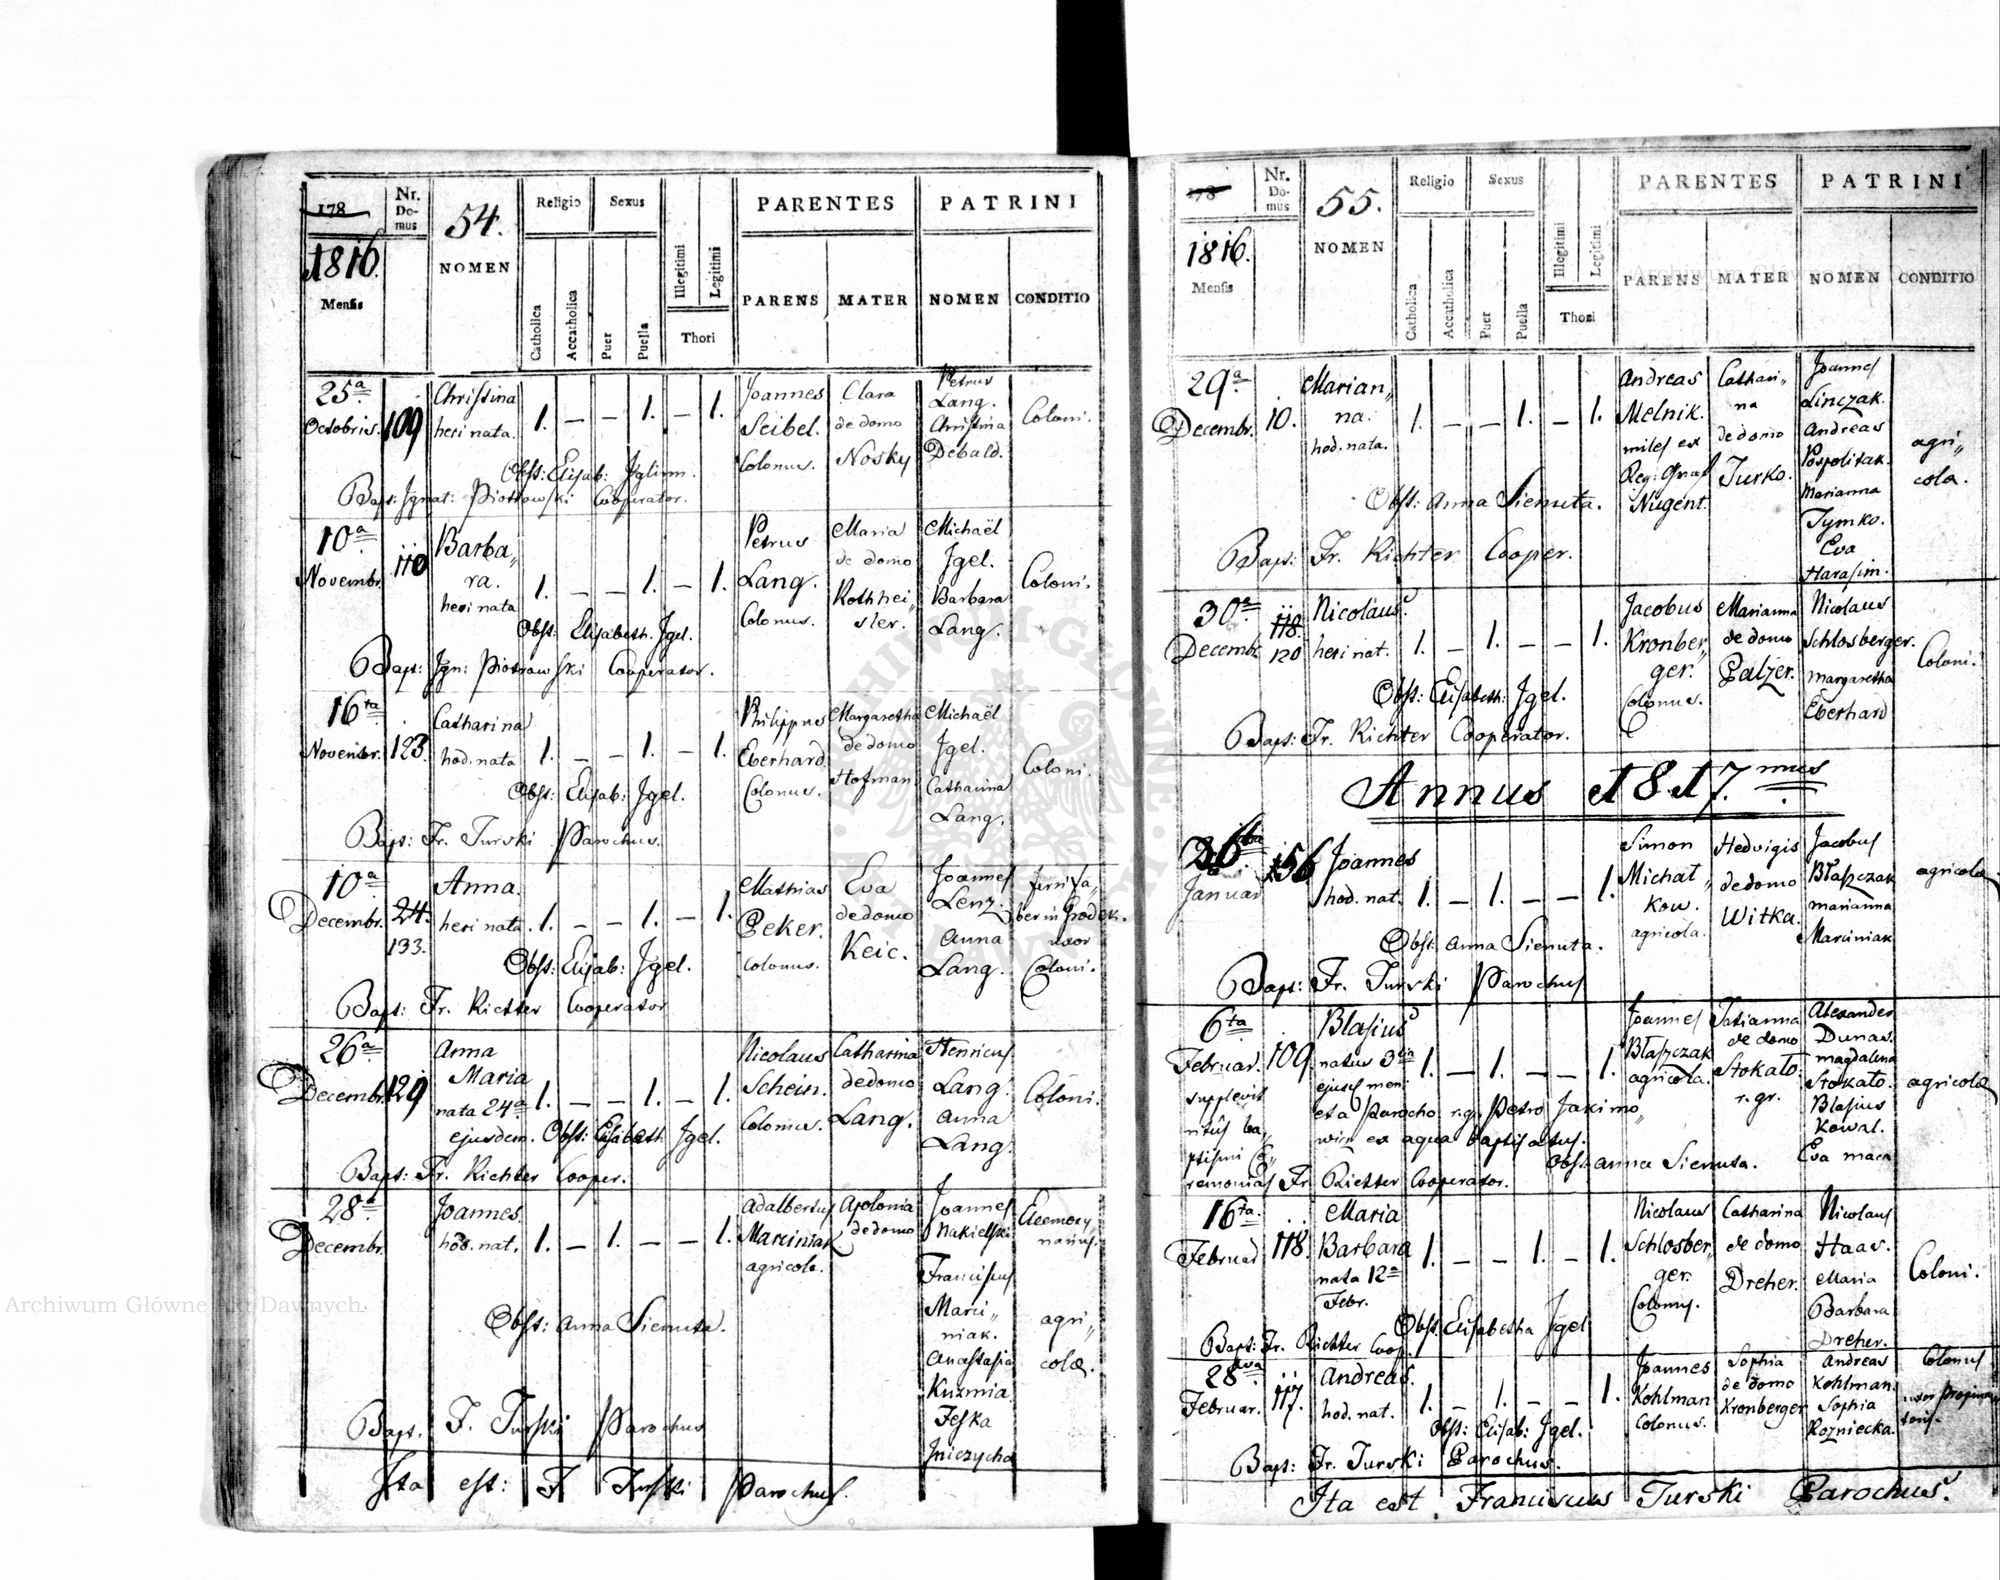 178
Nr. Domus
54.
Religio
Sexus
PARENTES
PATRINI
1816.
Mensis
NOMEN
Catholica
Accatholica
Puer
Puella
Illegitimi
Legitimi
Thori
PARENS
MATER
NOMEN
CONDITIO
25a Octobris. 109 Christina heri nata. 1. — — 1. — 1. Joannes Seibel. Colonus. Clara de domo Nosky Petrus Lang. Christina Debald. Coloni.
Obst: Elisab: Iglinn.
Bapt: Ignat: Piotrowski Cooperator.
10a Novembr. 110 Barbara. heri nata 1. — — 1. — 1. Petrus Lang. Colonus. Maria de domo Rothheisler. Michaël Igel. Barbara Lang. Coloni.
Obst: Elisabeth. Igel.
Bapt: Ign: Piotrowski Cooperator.
16ta Novembr. 123. Catharina hod. nata 1. — — 1. — 1. Philippus Eberhard Colonus. Margaretha de domo Hofman. Michaël Igel. Catharina Lang. Coloni.
Obst: Elisab: Igel.
Bapt: Fr. Turski Parochus.
10a Decembr. 24. 133. Anna. heri nata. 1. — — 1. — 1. Mathias Peker. Colonus. Eva de domo Keic. Joannes Lenz. Anna Lang. in Grodek. uxor Coloni.
Obst: Elisab: Igel.
Bapt: Fr. Richter Cooperator
26a Decembr. 129 Anna Maria nata 24a ejusdem. 1. — — 1. — 1. Nicolaus Schein. Colonus. Catharina de domo Lang. Henricus Lang. Anna Lang. Coloni.
Obst: Elisabeth Igel.
Bapt: Fr. Richter Cooper.
28a Decembr. Joannes. hod. nat. 1. — 1. — — 1. Adalbertus Marciniak agricola. Apolonia de domo Joannes Nakielski Franciscus Marciniak. Anastasia Kuzmia. Teska Jniczycha agricolæ.
Obst: Anna Sienuta.
Bapt. F. Turski Parochus
Ita est: F Turski Parochus.
178
Nr. Domus
55.
Religio
Sexus
PARENTES
PATRINI
1816.
Mensis
NOMEN
Catholica
Accatholica
Puer
Puella
Illegitimi
Legitimi
Thori
PARENS
MATER
NOMEN
CONDITIO
29a Decembr. 10. Marianna. hod. nata. 1. — — 1. — 1. Andreas Melnik. miles ex Reg: Graf Nugent. Catharina de domo Turko. Joannes Linczak. Andreas Pospolitak. Marianna Tymko. Eva Harasim. agricola.
Obst: Anna Sienuta.
Bapt: Fr. Richter Cooper.
30a Decembr. 118. 120 Nicolaus. heri nat. 1. — 1. — — 1. Jacobus Kronberger. Colonus. Marianna de domo Palzer. Nicolaus Schlosberger. Margaretha Eberhard Coloni.
Obst: Elisabeth: Igel.
Bapt: Fr. Richter Cooperator.
Annus 1817.mus
26ta Januar 156 Joannes hod. nat. 1. — 1. — — 1. Simon Michałkow. agricola. Hedvigis de domo Witka. Jacobus Błaszczak Marianna Marciniak agricolæ
Obst: Anna Sienuta.
Bapt: Fr. Turski Parochus
6ta Februar. 109. Blasius natus 3tia ejus men. 1. — 1. — — 1. Joannes Błaszczak agricola. Tatianna de domo Stokało. r. gr. Alexander Dunas. Magdalena Stokało. Blasius Kowal. Eva agricolæ
supplevit ritus baptismi Ceremonias Fr. Richter Cooperator.
et a Parocho r.g. Petro Jakimowicz ex aqua baptisatus.
Obst: Anna Sienuta.
16ta. Februar 118. Maria Barbara nata 12a Febr. 1. — — 1. — 1. Nicolaus Schlosberger. Colonus. Catharina de domo Dreher. Nicolaus Haas. Maria Barbara Dreher. Coloni.
Obst. Elisabetha Igel
Bapt: Fr. Richter Coop.
28va Februar. 117. Andreas. hod. nat. 1. — 1. — — 1. Joannes Kohlman Colonus. Sophia de domo Kronberger Andreas Kohlman. Sophia Rozniecka. Colonus
Obst: Elisab: Igel.
Bapt: Fr. Turski Parochus.
Ita est Franciscus Turski Parochus.
Archiwum Główne Akt Dawnych